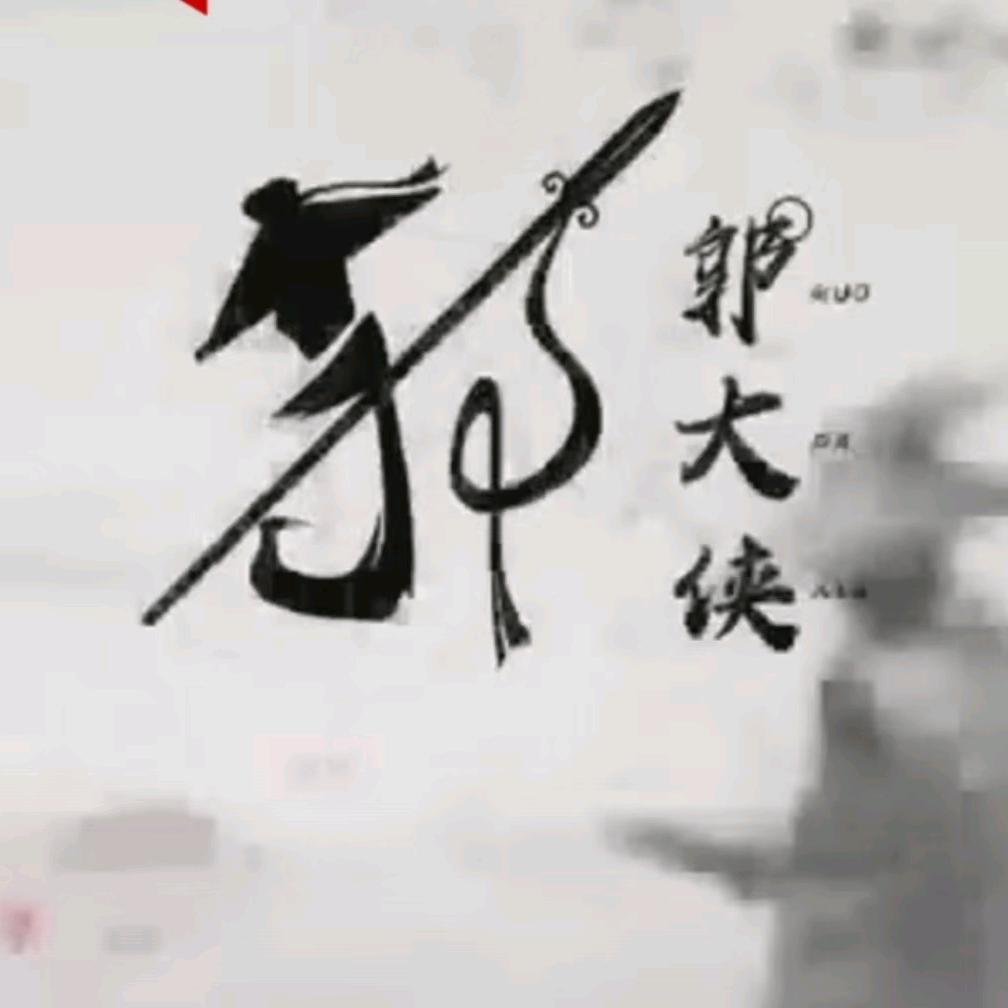 郭
郭大侠
GUO
DA
XIA